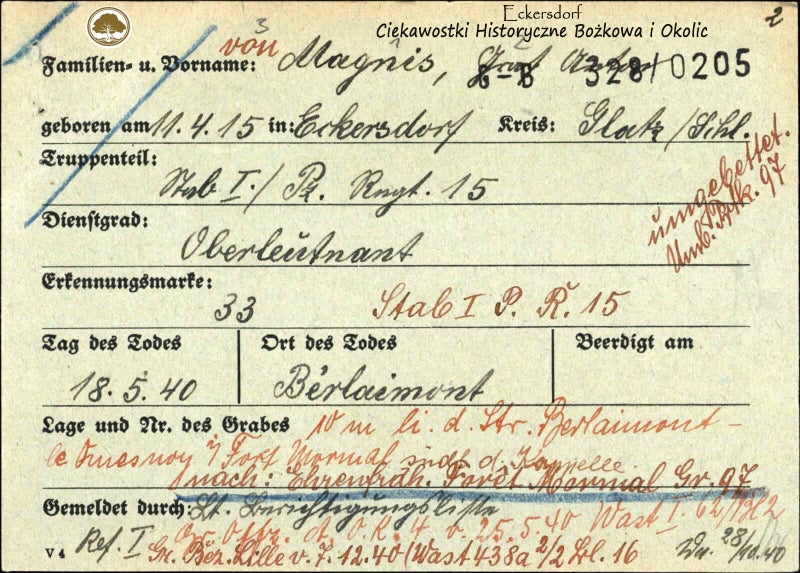 Eckersdorf
Ciekawostki Historyczne Bożkowa i Okolic
2
3
Familien- u. Vorname: von Magnis, Graf
G-B 328/0205
geboren am 11.4.15 in: Eckersdorf Kreis: Glatz/Schl.
Truppenteil:
Stab I./ Pz. Rngt. 15
umgebettet.
97
Dienstgrad:
Oberleutnant
Erkennungsmarke:
33 Stab I P. R. 15
Tag des Todes Ort des Todes Beerdigt am
18.5.40 Berlaimont
Lage und Nr. des Grabes 10 m li. d. Str. Berlaimont-
le Quesnoy i/ Fort Mormal südl. d. Kapelle
nach: Ehrenfrdh. Forêt Mormal Gr. 97
Gemeldet durch: Lt. Berichtigungsliste
Gr. Offz. d. A.O.K. 4 v. 25.5.40 Wast I
V 4 Ref. I Gr. Bez. Lille v. 7.12.40 (Wast 438a 2/2 Bl. 16
28/10.40